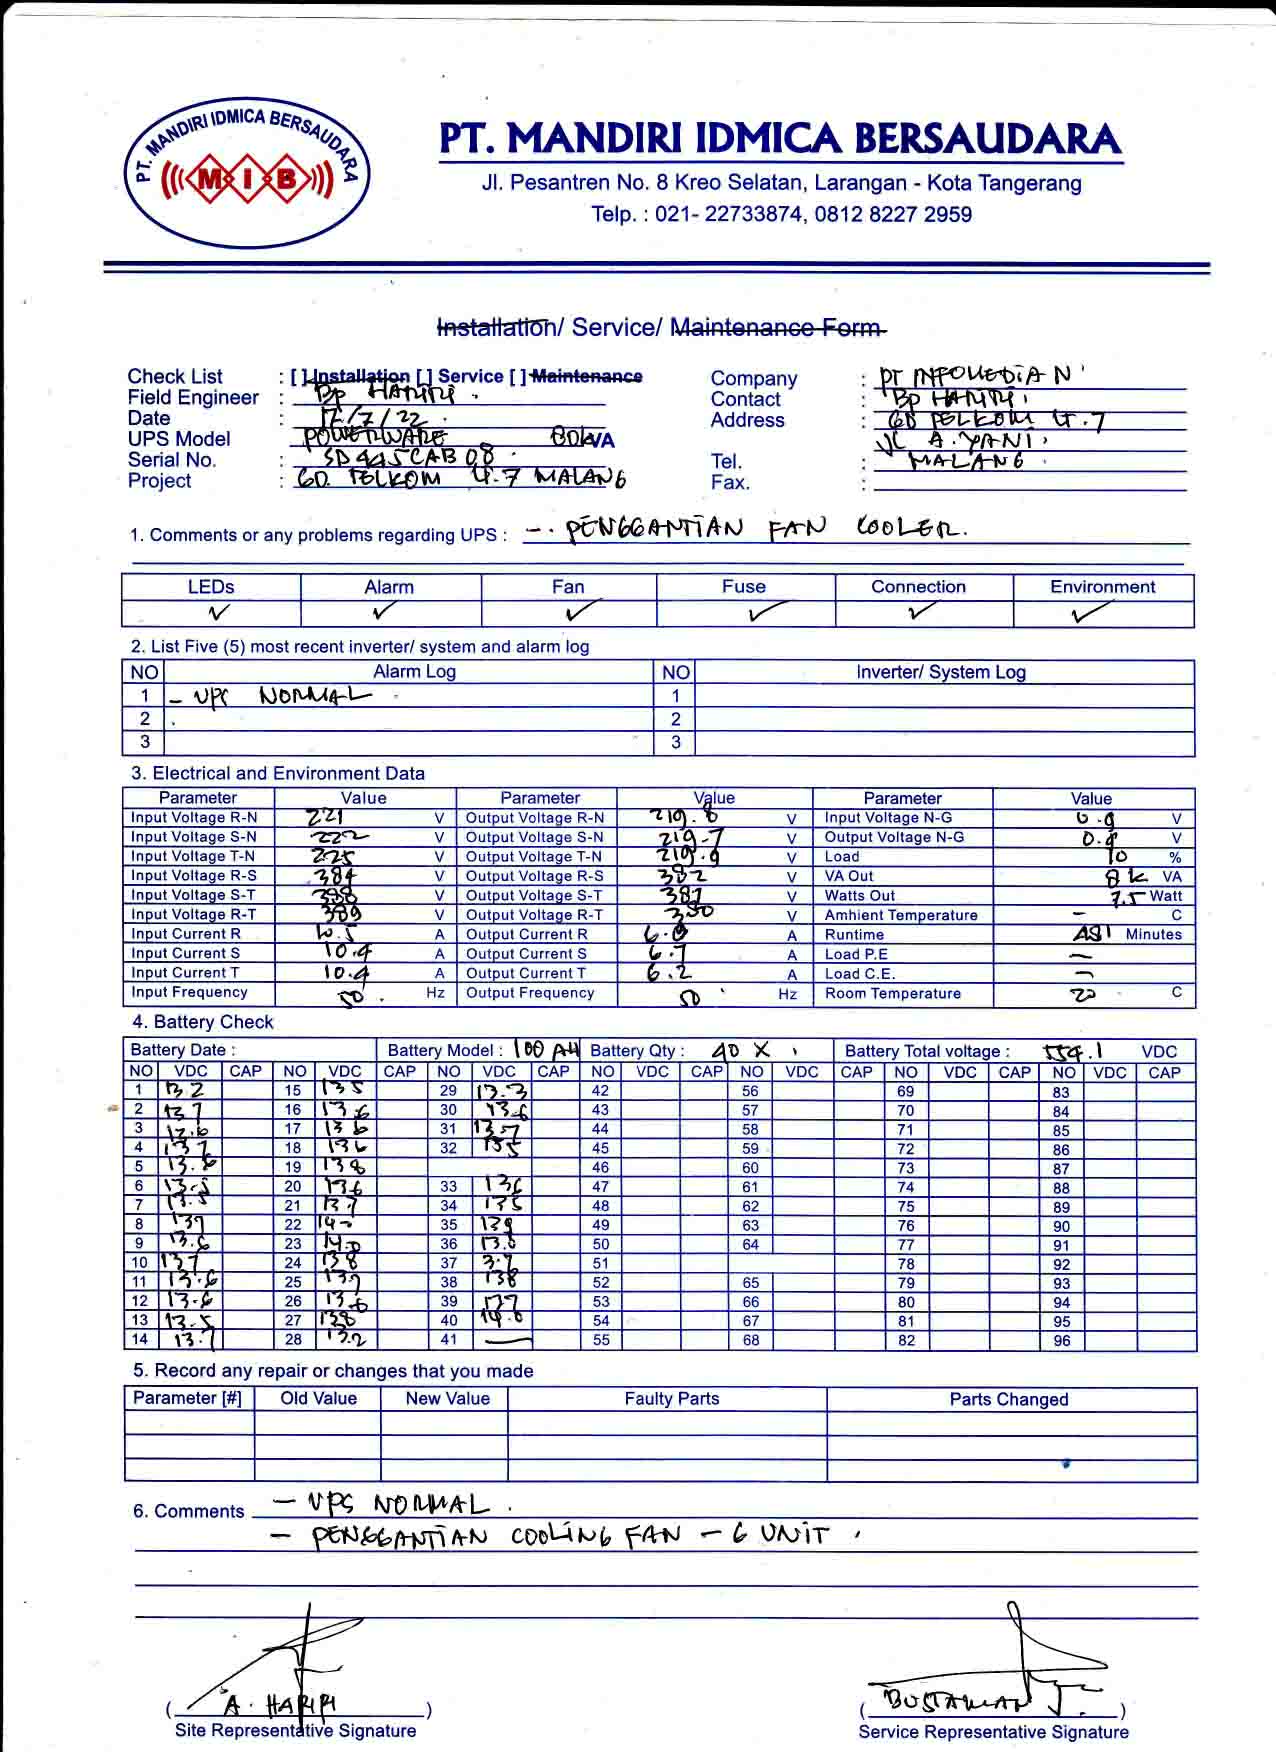 PT. MANDIRI IDMICA BERSAUDARA
MIB
PT. MANDIRI IDMICA BERSAUDARA
Jl. Pesantren No. 8 Kreo Selatan, Larangan - Kota Tangerang
Telp. : 021- 22733874, 0812 8227 2959
Installation/ Service/ Maintenance Form
Check List : [ ] Installation [ ] Service [ ] Maintenance Company : PT INFOMEDIA N
Field Engineer : Bp HARIRI. Contact : Bp HARIRI.
Date : 12/7/22. Address : GD TELKOM Lt.7
UPS Model POWERWARE 80kVA JL A. YANI.
Serial No. : SD445CAB08. Tel. : MALANG.
Project : GD. TELKOM Lt.7 MALANG Fax. :
1. Comments or any problems regarding UPS : -. PENGGANTIAN FAN COOLER.
LEDs Alarm Fan Fuse Connection Environment
✓ ✓ ✓ ✓ ✓ ✓
2. List Five (5) most recent inverter/ system and alarm log
NO Alarm Log NO Inverter/ System Log
1 - UPS NORMAL 1
2 2
3 3
3. Electrical and Environment Data
Parameter Value Parameter Value Parameter Value
Input Voltage R-N 221 V Output Voltage R-N 219.8 V Input Voltage N-G 0.9 V
Input Voltage S-N 222 V Output Voltage S-N 219.7 V Output Voltage N-G 0.9 V
Input Voltage T-N 225 V Output Voltage T-N 219.9 V Load 10 %
Input Voltage R-S 384 V Output Voltage R-S 382 V VA Out 8k VA
Input Voltage S-T 388 V Output Voltage S-T 381 V Watts Out 7.5 Watt
Input Voltage R-T 389 V Output Voltage R-T 380 V Amhient Temperature - C
Input Current R 10.5 A Output Current R 6.0 A Runtime Minutes
Input Current S 10.4 A Output Current S 6.7 A Load P.E -
Input Current T 10.4 A Output Current T 6.2 A Load C.E. -
Input Frequency 50. Hz Output Frequency 50 Hz Room Temperature 22 C
4. Battery Check
Battery Date : Battery Model : 100 AH Battery Qty : 40 X Battery Total voltage : 554.1 VDC
NO VDC CAP NO VDC CAP NO VDC CAP NO VDC CAP NO VDC CAP NO VDC CAP NO VDC CAP
1 13.2 15 13.5 29 13.3 42 56 69 83
2 13.7 16 13.6 30 13.6 43 57 70 84
3 13.6 17 13.6 31 13.7 44 58 71 85
4 13.7 18 13.6 32 13.5 45 59 72 86
5 13.6 19 13.8 46 60 73 87
6 13.5 20 13.6 33 13.6 47 61 74 88
7 13.5 21 13.7 34 13.5 48 62 75 89
8 137 22 14.0 35 139 49 63 76 90
9 13.6 23 14.0 36 13.8 50 64 77 91
10 137 24 138 37 3.7 51 78 92
11 13.6 25 137 38 138 52 65 79 93
12 13.6 26 13.6 39 137 53 66 80 94
13 13.5 27 138 40 14.0 54 67 81 95
14 13.7 28 13.2 41 — 55 68 82 96
5. Record any repair or changes that you made
Parameter [#] Old Value New Value Faulty Parts Parts Changed
6. Comments - UPS NORMAL.
- PENGGANTIAN COOLING FAN - 6 UNIT.
( A. HARIRI ) ( BUSTAMAN )
Site Representative Signature Service Representative Signature